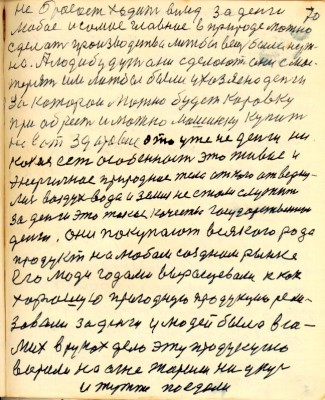 не бросает ходить вслед за деньги 70
Любое и самое главное в природе можно
сделат производства лишбы вещ была нуж
на. А люди будут они сделают они смас
терят им лишбы были у хозяено денги
За которои можно будет коровку
приобрест и можно машинку купит
не вот здаровие это уже не денги ни
какая ест особенност это живые и
энергичное природное тела от кого отверну
лис воздух вода и земля не стал служит
за денги это такое качество государственных
денги. Они покупают всякого рода
продукт на любом создоном рынке
Его люди годами выращевали как
хорошую пригодную продукцию реали
зовали за денги у людей было в са
мих в руках дело эту продукцию
варили на огне жарили на
и тут же поедали